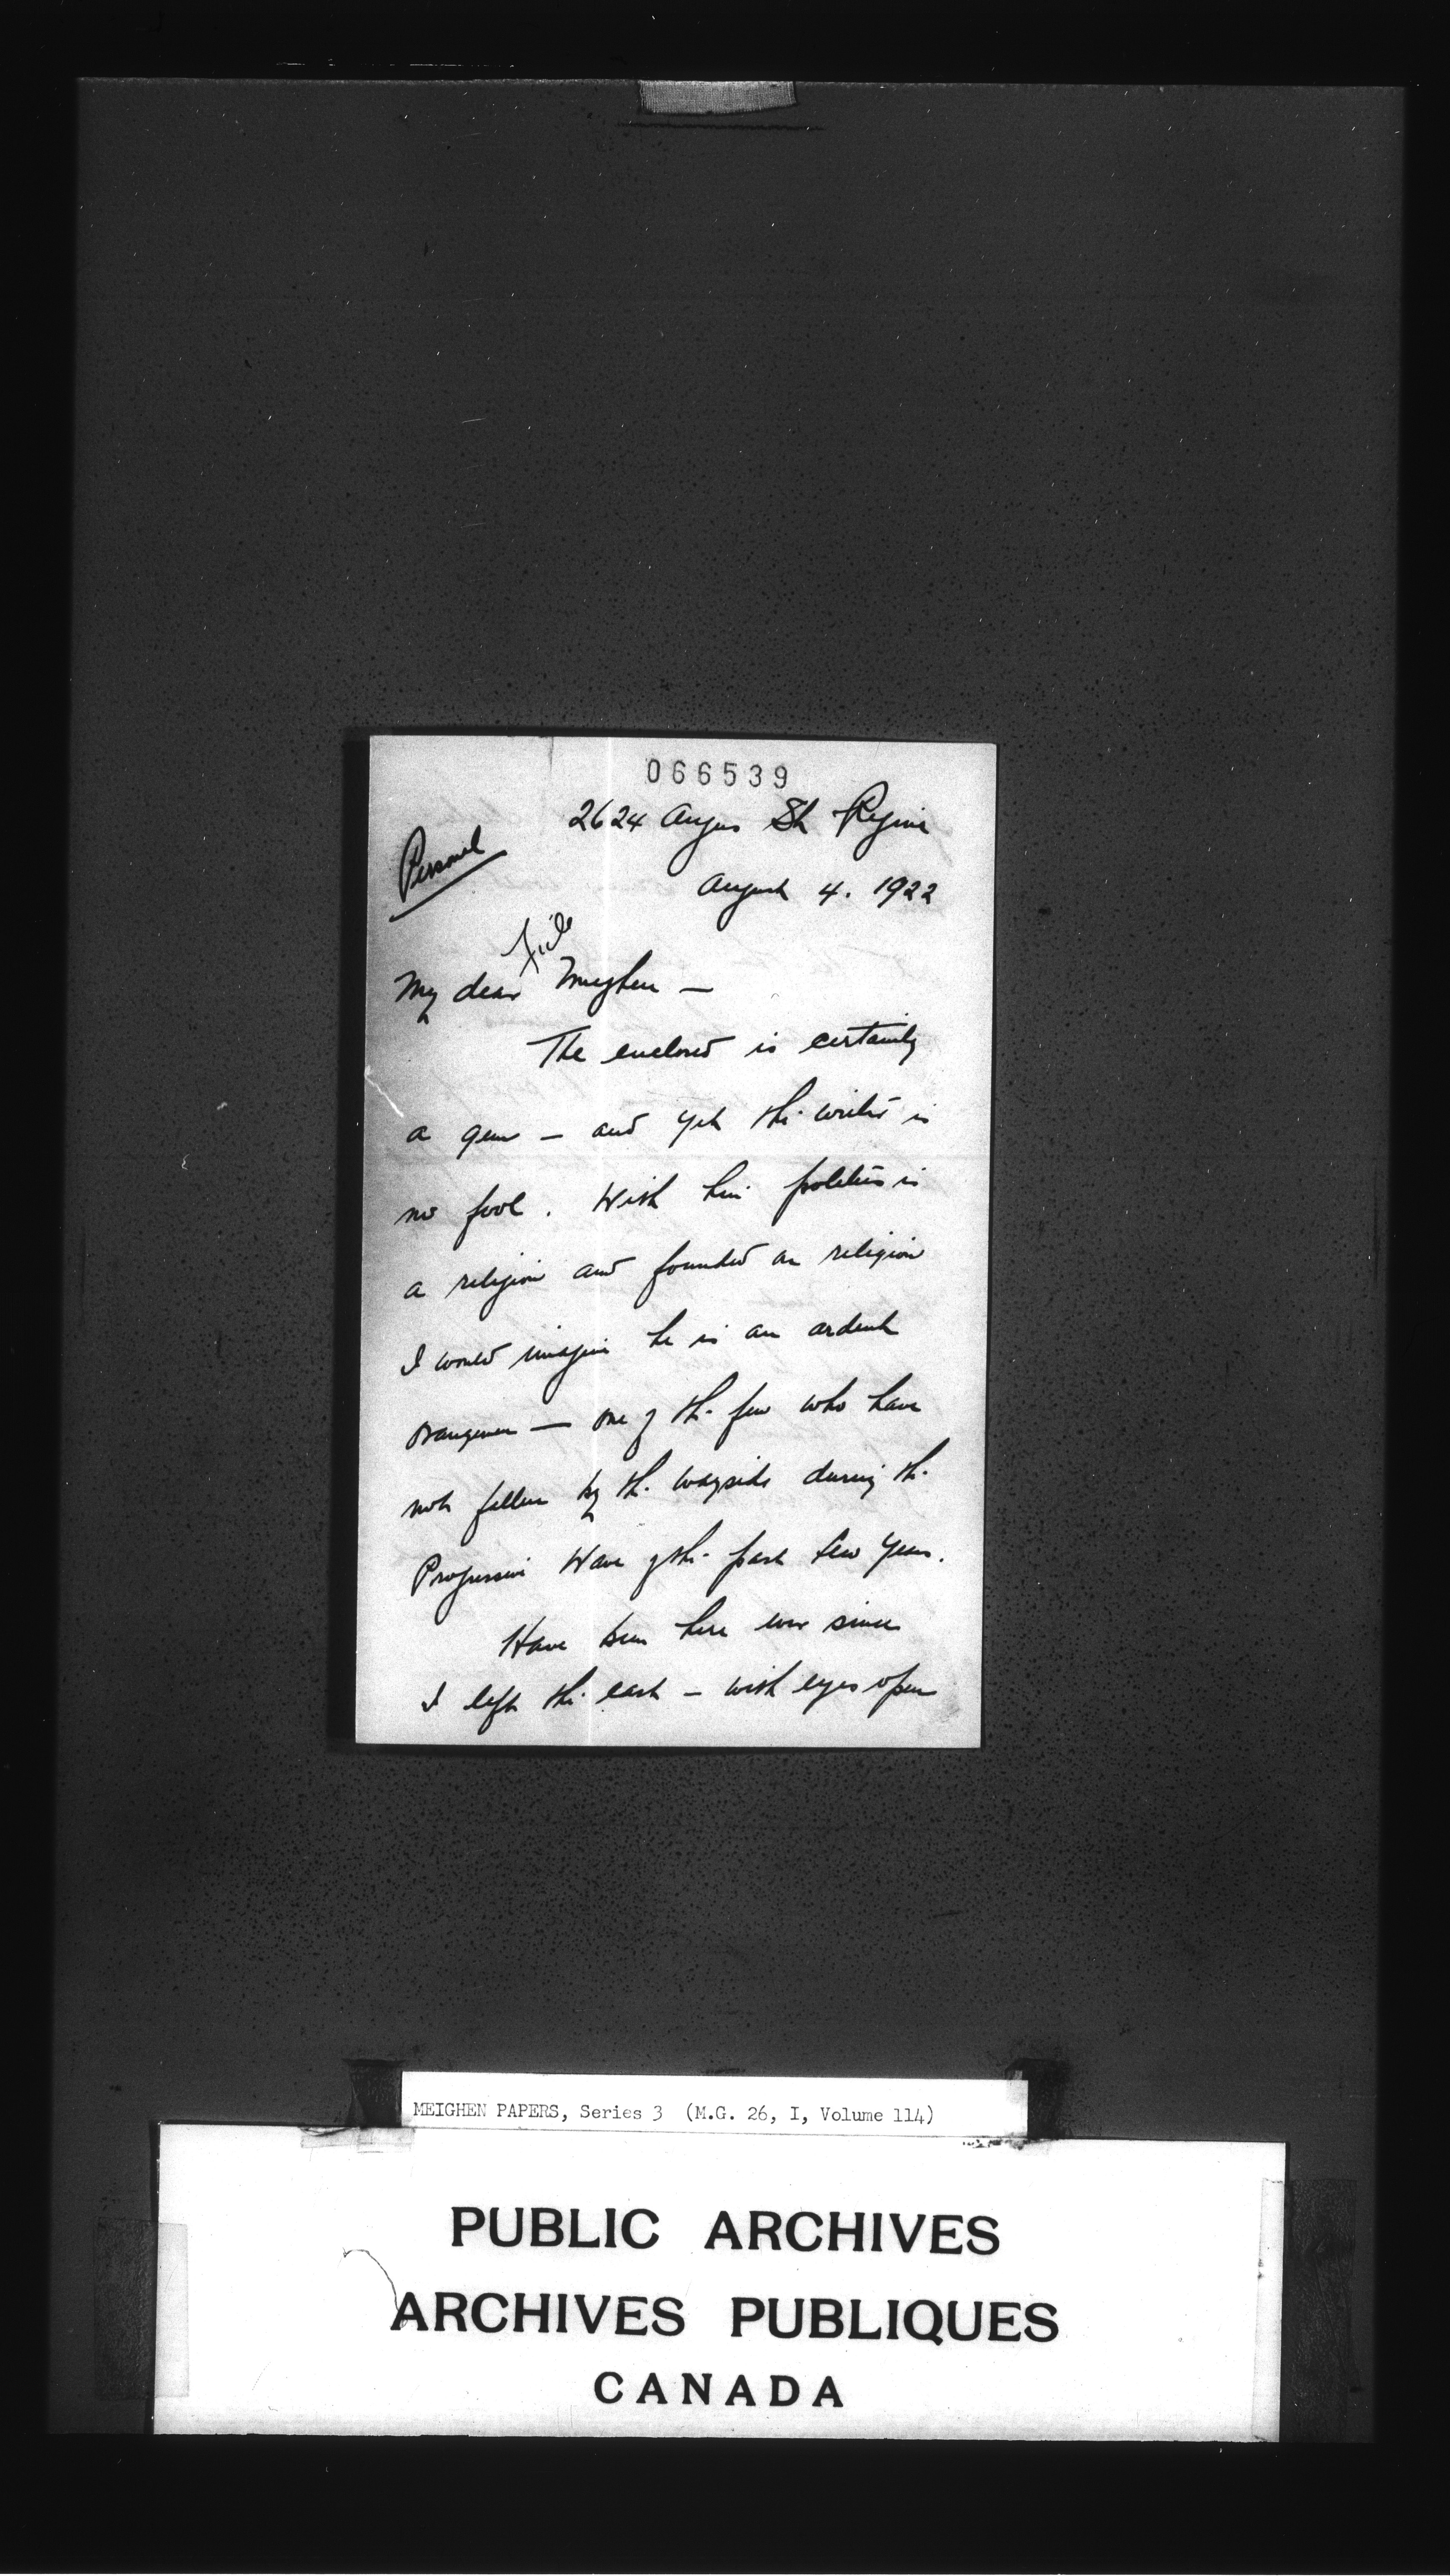 066539
2624 Angus St Regina
Personal
August 4. 1922
File
My dear Meighen —
The enclosed is certainly
a gem — and yet the writer is
no fool. With him politics is
a religion and founded on religion
I would imagine he is an ardent
Orangeman — one of the few who have
not fallen by the wayside during the
Progressive Wave of the past few years.
Have been here ever since
I left the east — with eyes open
MEIGHEN PAPERS, Series 3 (M.G. 26, I, Volume 114)
PUBLIC ARCHIVES
ARCHIVES PUBLIQUES
CANADA